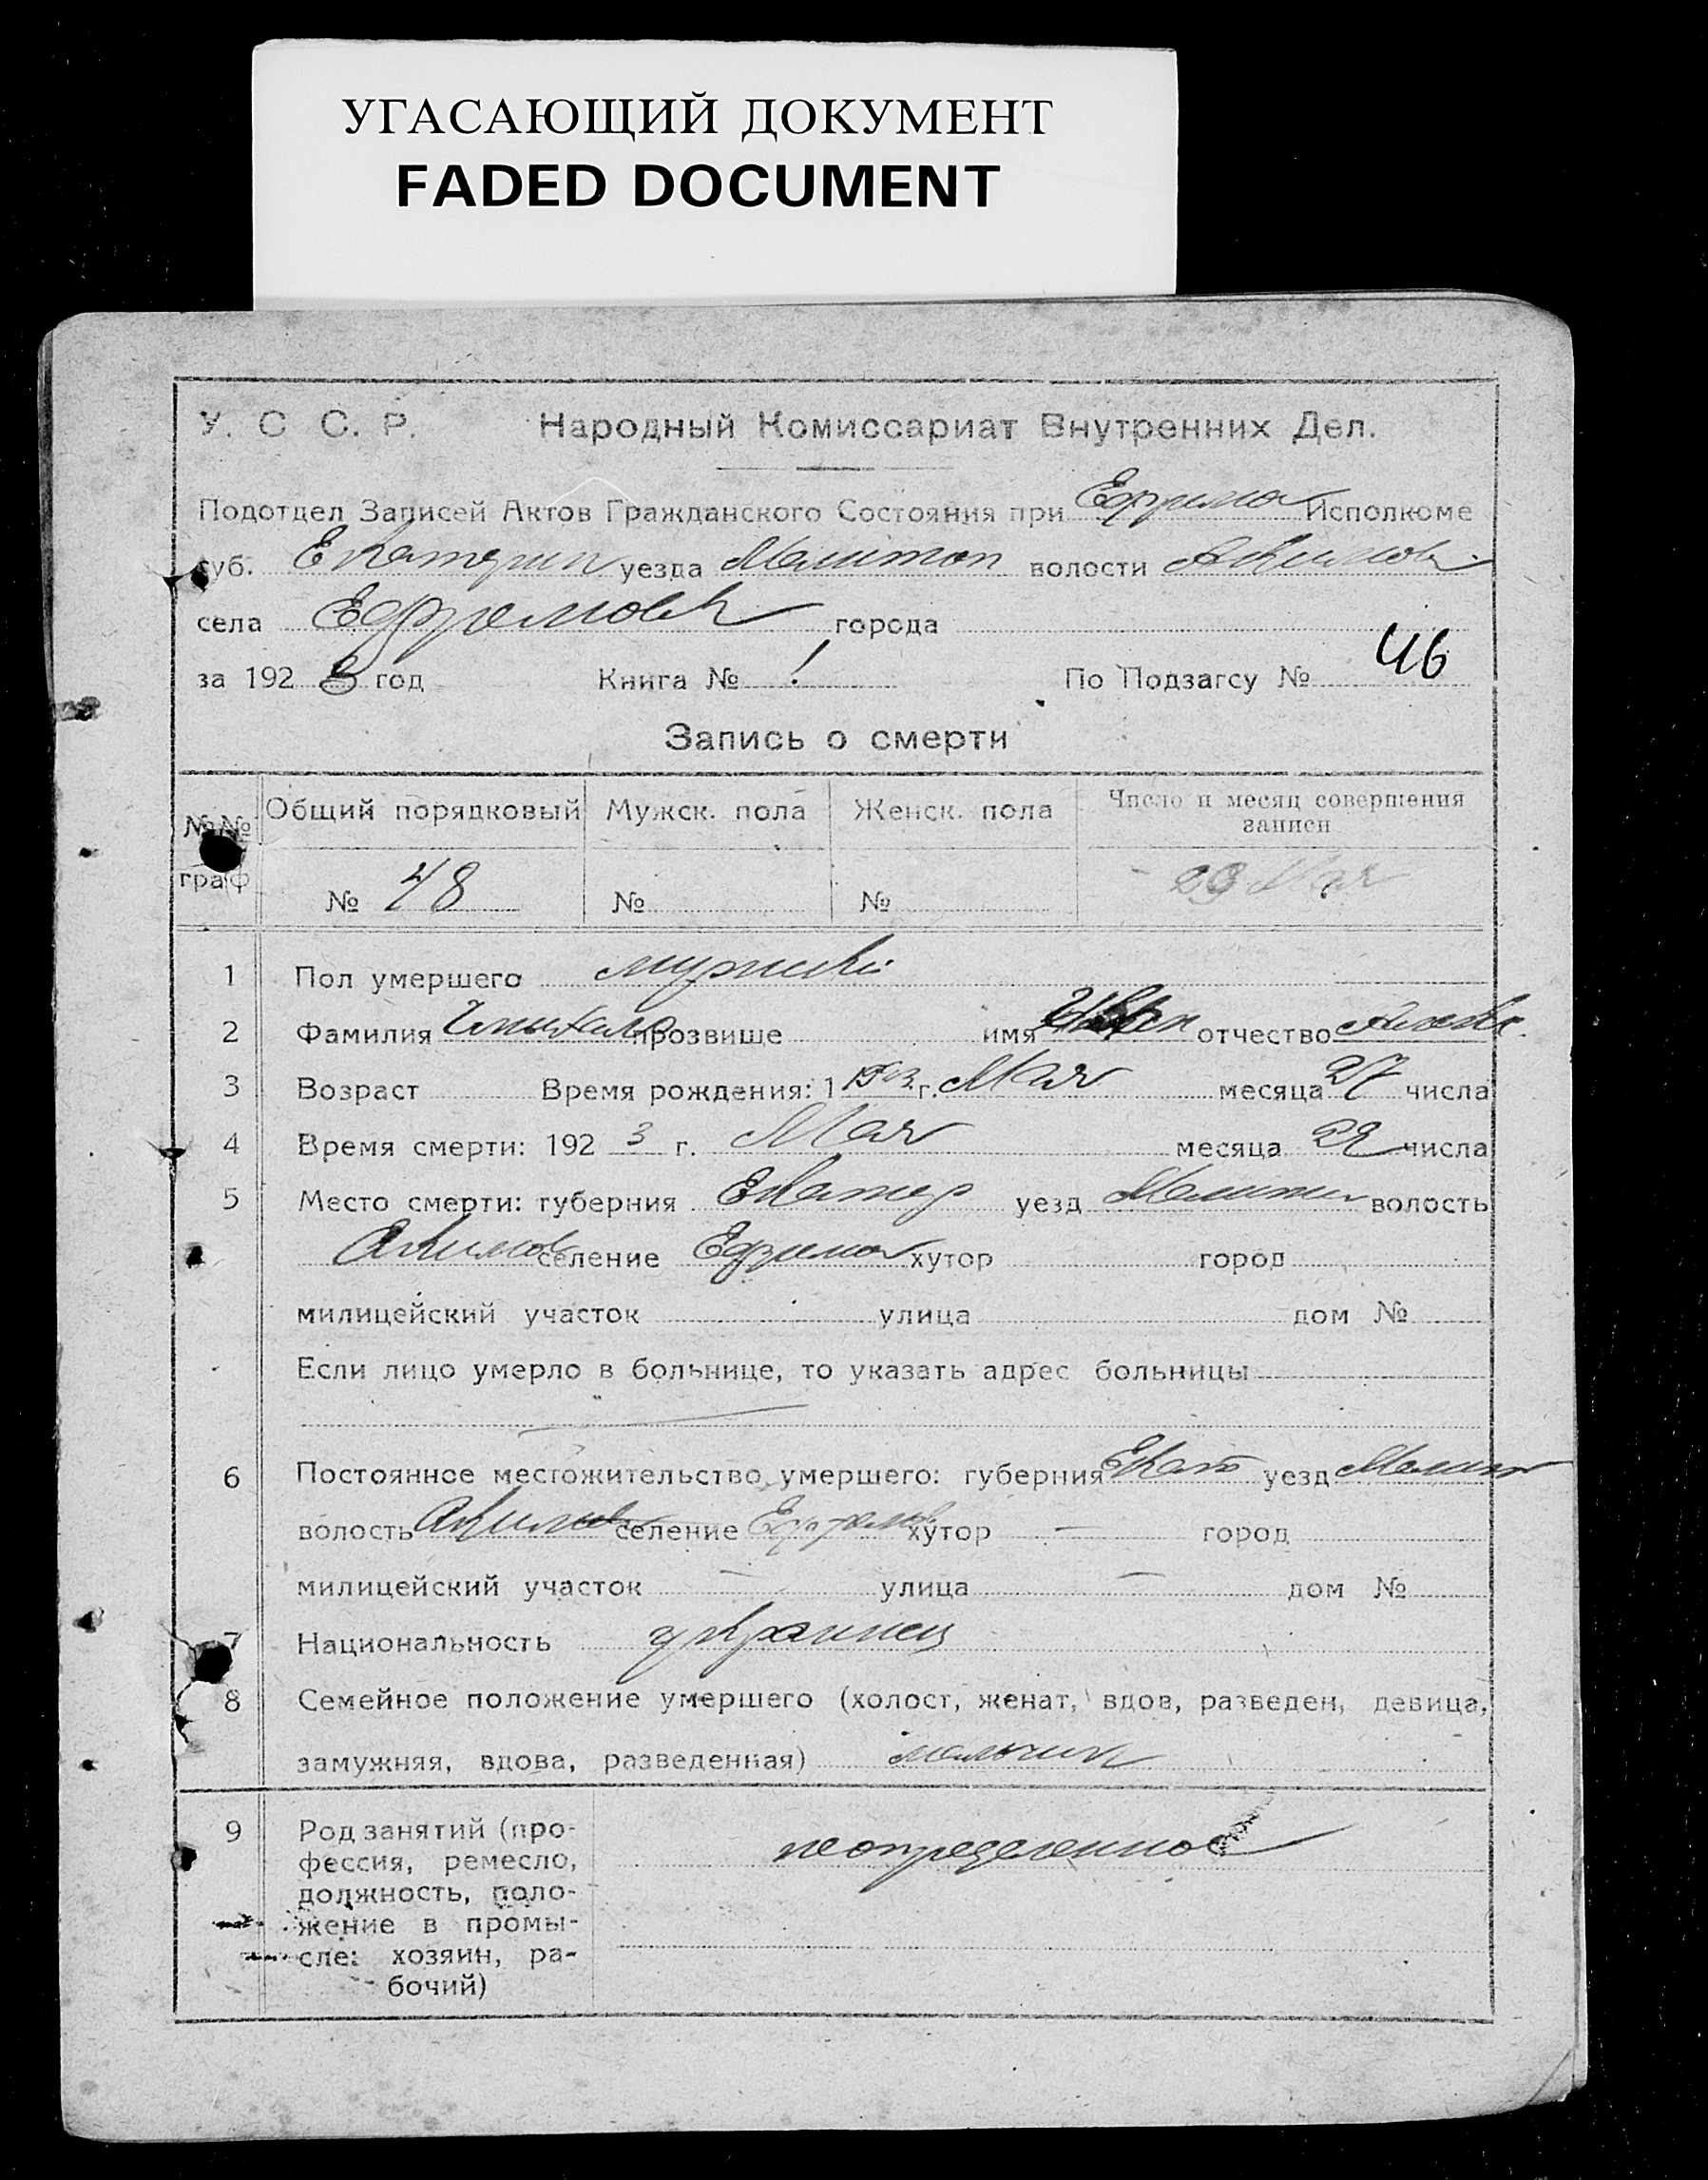 УГАСАЮЩИЙ ДОКУМЕНТ
FADED DOCUMENT
У. С С. Р. Народный Комиссариат Внутренних Дел.
Подотдел Записей Актов Гражданского Состояния при Ефремов Исполкоме
губ. Екатерин уезда Мелитоп волости Акимов.
села Ефремовк города
за 1923 год Книга № 1 По Подзагсу № 46
Запись о смерти
№№ граф Общий порядковый Мужск. пола Женск. пола Число и месяц совершения записи
№ 48 № № 29 Мая
1 Пол умершего мужский
2 Фамилия прозвище имя Иван отчество
3 Возраст Время рождения: 1 г. Мая месяца 27 числа
4 Время смерти: 1923 г. Мая месяца числа
5 Место смерти: губерния Екатер уезд Мелитоп волость
Акимов селение Ефремов хутор город
милицейский участок улица дом №
Если лицо умерло в больнице, то указать адрес больницы
6 Постоянное местожительство умершего: губерния Екат уезд Мелит
волость Акимов селение Ефремов хутор — город
милицейский участок — улица — дом №
7 Национальность украинец
8 Семейное положение умершего (холост, женат, вдов, разведен, девица,
замужняя, вдова, разведенная) мальчик
9 Род занятий (про-
фессия, ремесло,
должность, поло-
жение в промы-
сле: хозяин, ра-
бочий)
неопределенное